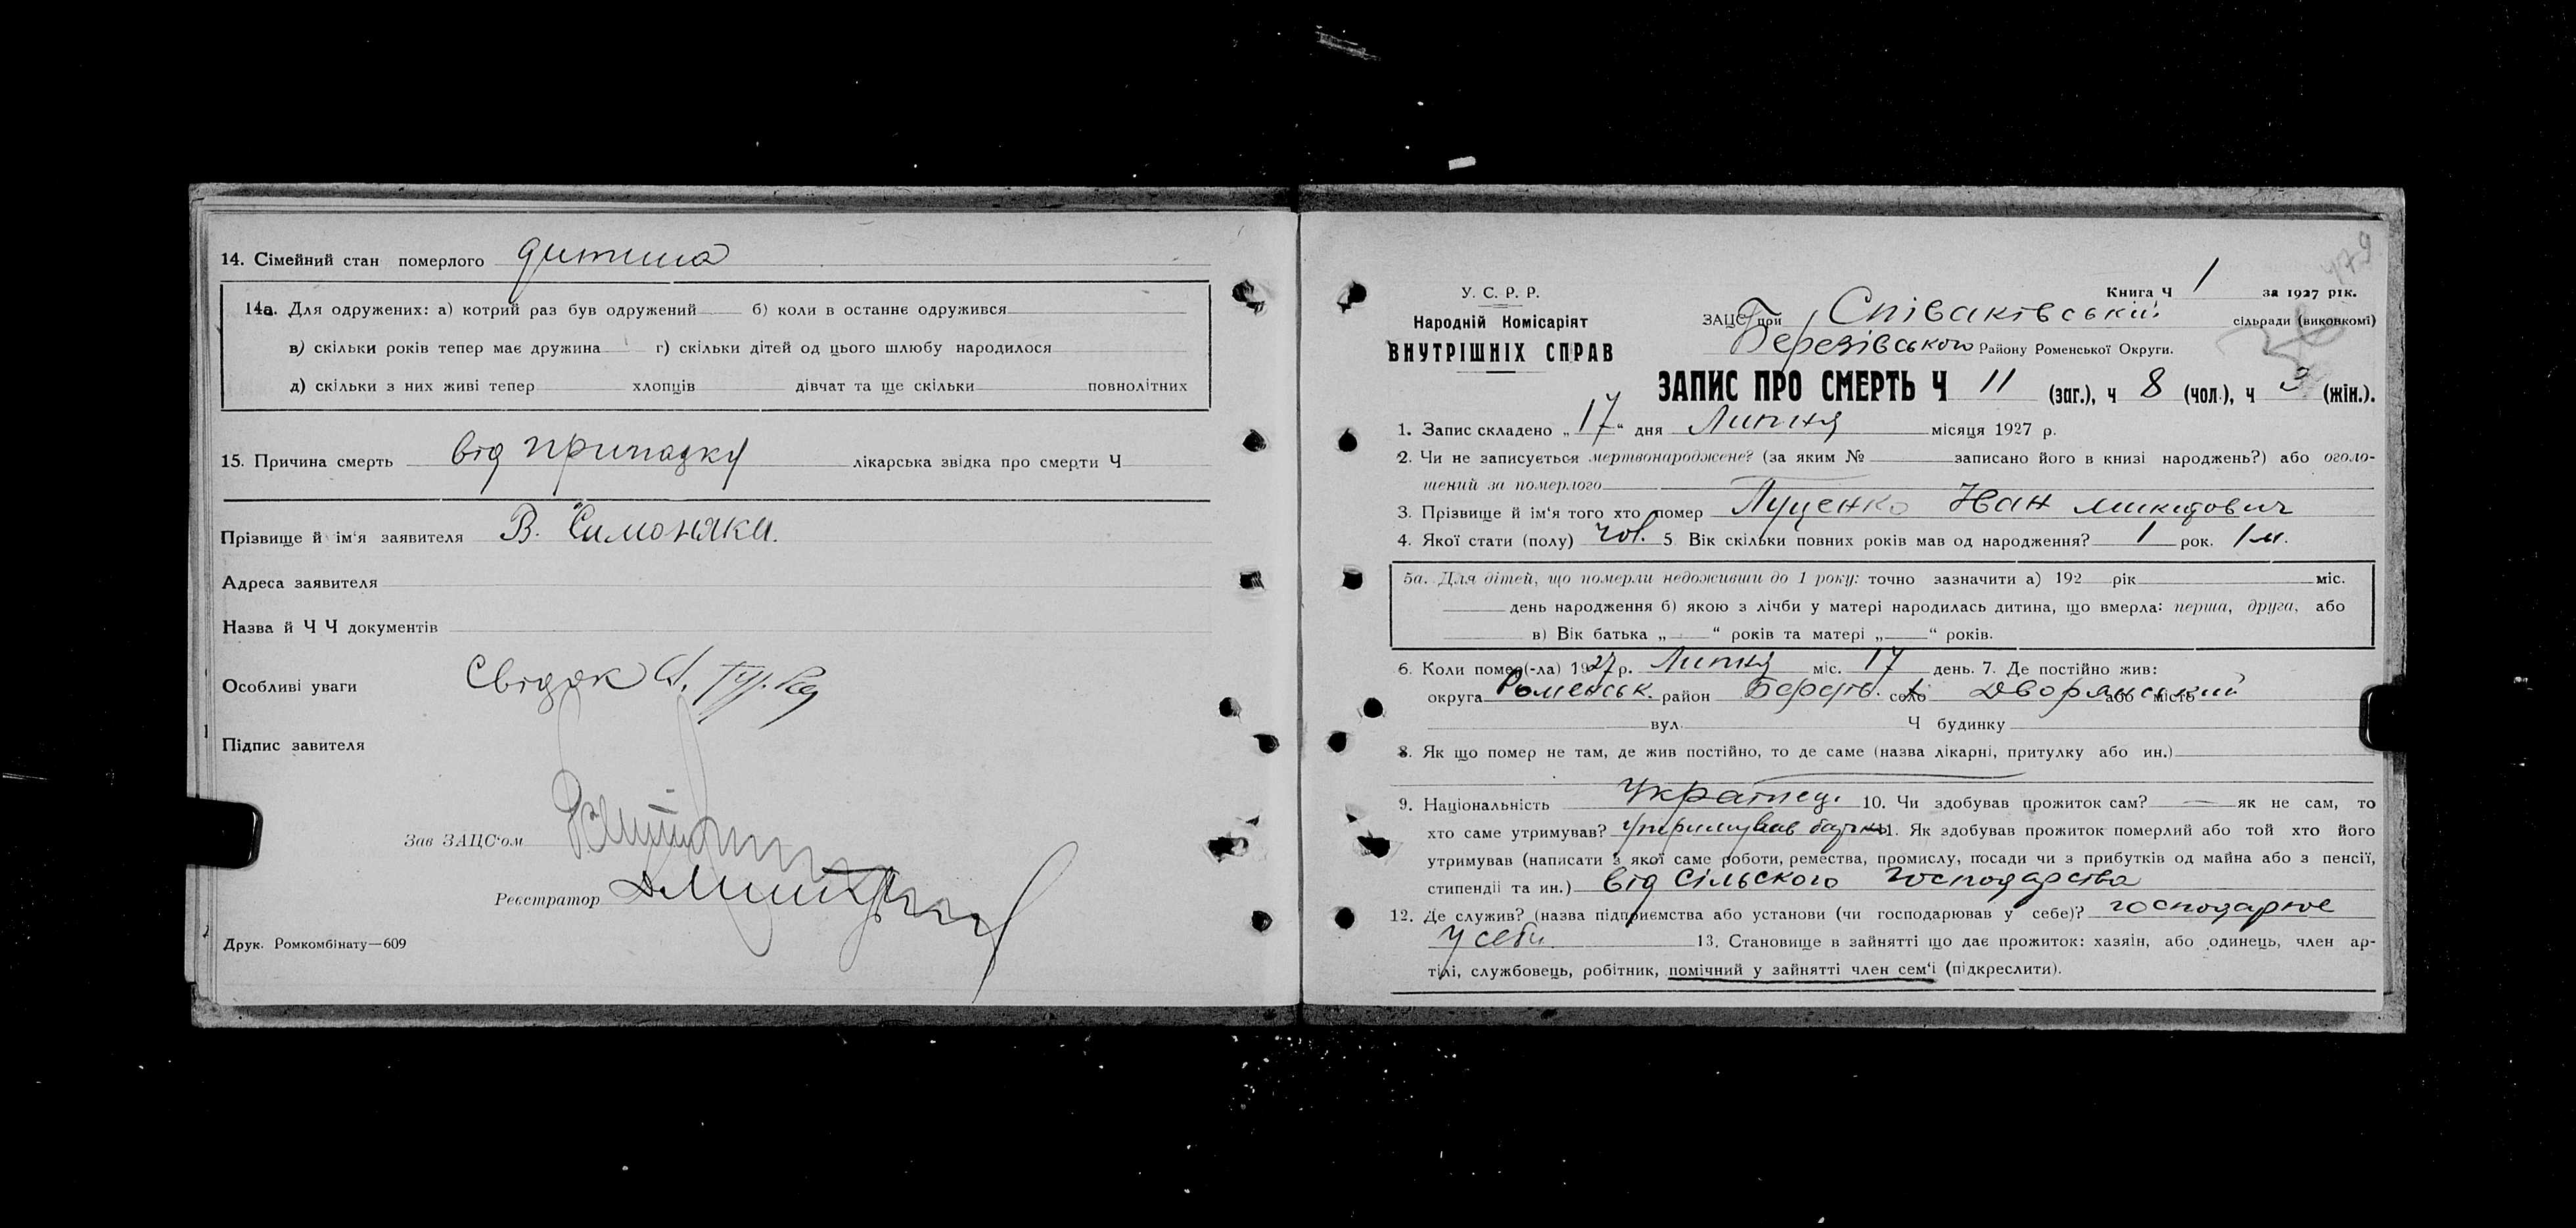 14. Сімейний стан померлого дитина
14а. Для одружених: а) котрий раз був одружений б) коли в останнє одружився
в) скільки років тепер має дружина г) скільки дітей од цього шлюбу народилося
д) скільки з них живі тепер хлопців дівчат та ще скільки повнолітних
15. Причина смерть від припадку лікарська звідка про смерти Ч
Прізвище й ім'я заявителя В. Симоняка.
Адреса заявителя
Назва й Ч Ч документів
Особливі уваги Свідок
Підпис завителя
Зав ЗАЦС'ом
Реєстратор
Друк. Ромкомбінату—609
479
У. С. Р. Р.
Народній Комісаріят
ВНУТРІШНІХ СПРАВ
Книга Ч 1 за 1927 рік.
ЗАЦС при Співаківській сільради (виконкомі)
Березівського Району Роменської Округи.
ЗАПИС ПРО СМЕРТЬ Ч 11 (заг.), ч 8 (чол.), ч 3 (жін.).
1. Запис складено „17“ дня Липня місяця 1927 р.
2. Чи не записується мертвонароджене? (за яким № записано його в книзі народжень?) або оголо-
шений за померлого
3. Прізвище й ім'я того хто помер Луценко Іван Микитович
4. Якої стати (полу) чол. 5 Вік скільки повних років мав од народження? 1 рок. 1 м.
5а. Для дітей, що померли недоживши до 1 року: точно зазначити а) 192 рік міс.
день народження б) якою з лічби у матері народилась дитина, що вмерла: перша, друга, або
в) Вік батька „ “ років та матері „ “ років.
6. Коли помер(-ла) 1927 р. Липня міс. 17 день. 7. Де постійно жив:
округа Роменськ. район Березів. село або місто Дворянський
вул. Ч будинку
8. Як що помер не там, де жив постійно, то де саме (назва лікарні, притулку або ин.)
9. Національність Українец. 10. Чи здобував прожиток сам? — як не сам, то
хто саме утримував? утримував батько 11. Як здобував прожиток померлий або той хто його
утримував (написати з якої саме роботи, ремества, промислу, посади чи з прибутків од майна або з пенсії,
стипендії та ин.) від сільского господарства
12. Де служив? (назва підприємства або установи (чи господарював у себе)? господарює
у себи. 13. Становище в зайнятті що дає прожиток: хазяін, або одинець, член ар-
тілі, службовець, робітник, помічний у зайнятті член сем'ї (підкреслити).